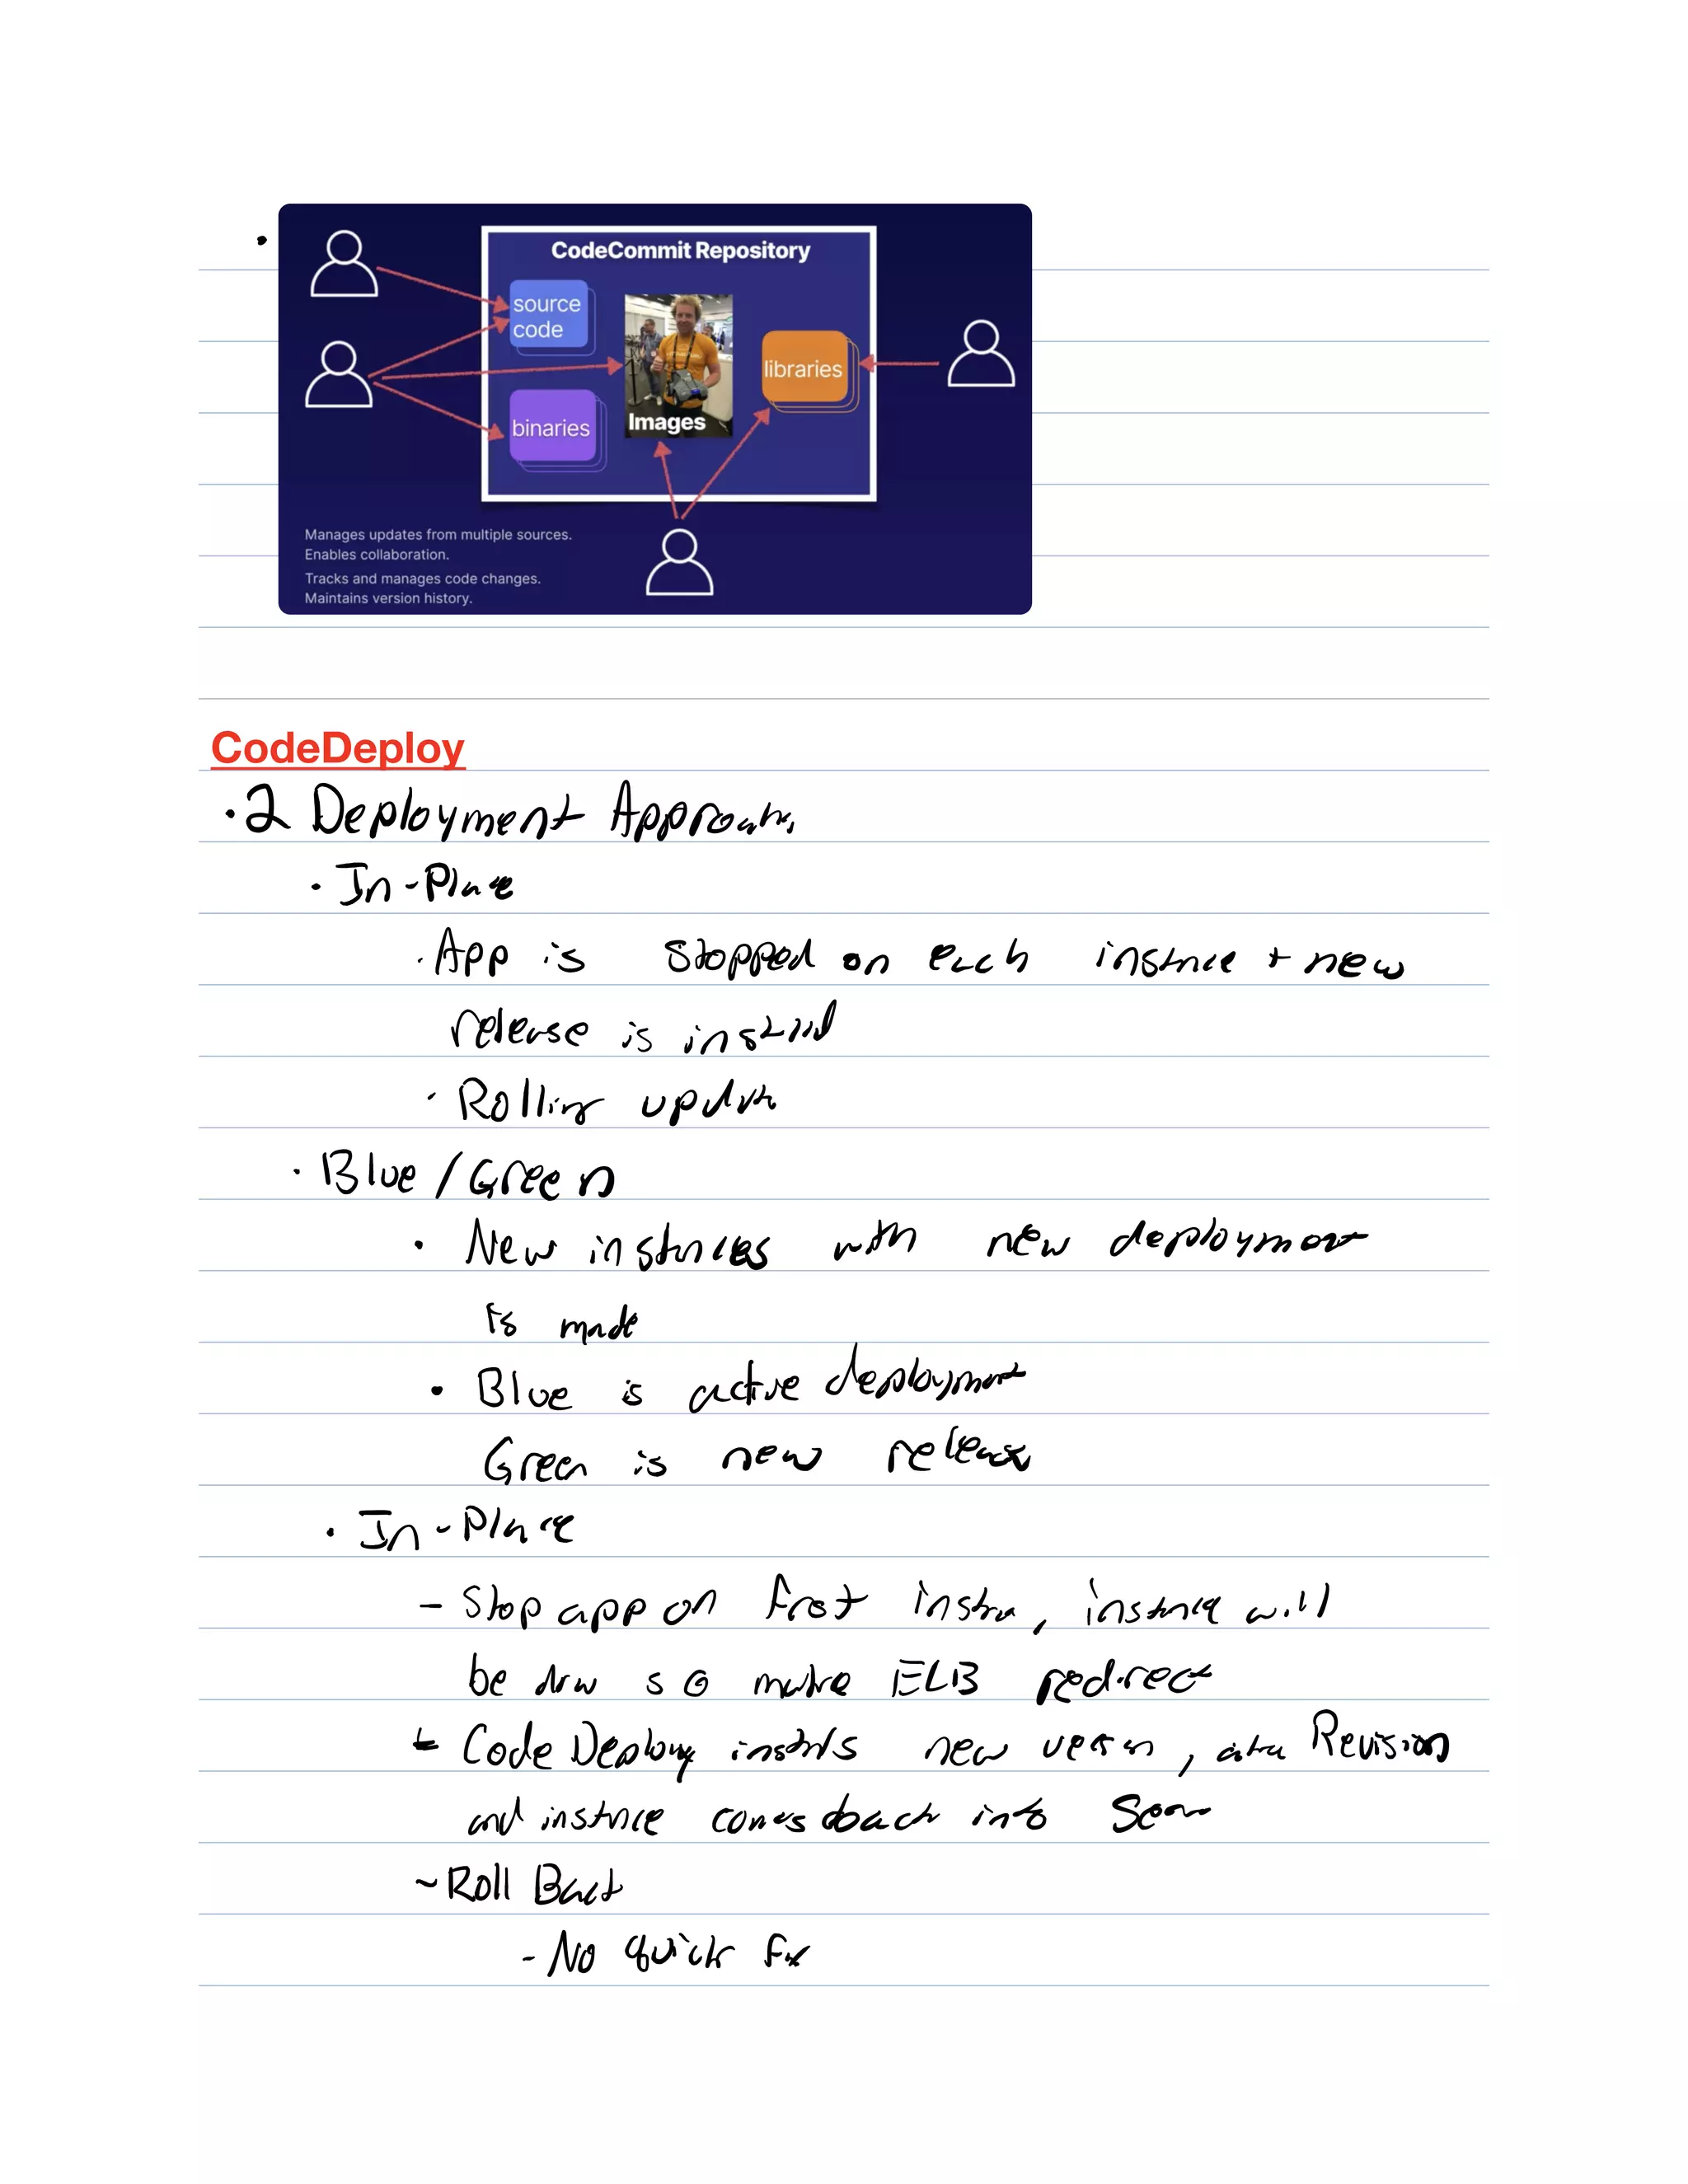 CodeCommit Repository
source
code
Images
libraries
binaries
Manages updates from multiple sources.
Enables collaboration.
Tracks and manages code changes.
Maintains version history.
CodeDeploy
• 2 Deployment
• In-Place
• App is stopped on each instnce + new
release is
• Rolling update
• Blue / Green
• New instnces with new deployment
is made
• Blue is active deployment
Green is new release
• In-Place
- Stop app on first, instnce will
be so make ELB redirect
- Code Deploy new, aka Revision
and instnce comes back into
- Roll Back
- No quick fix